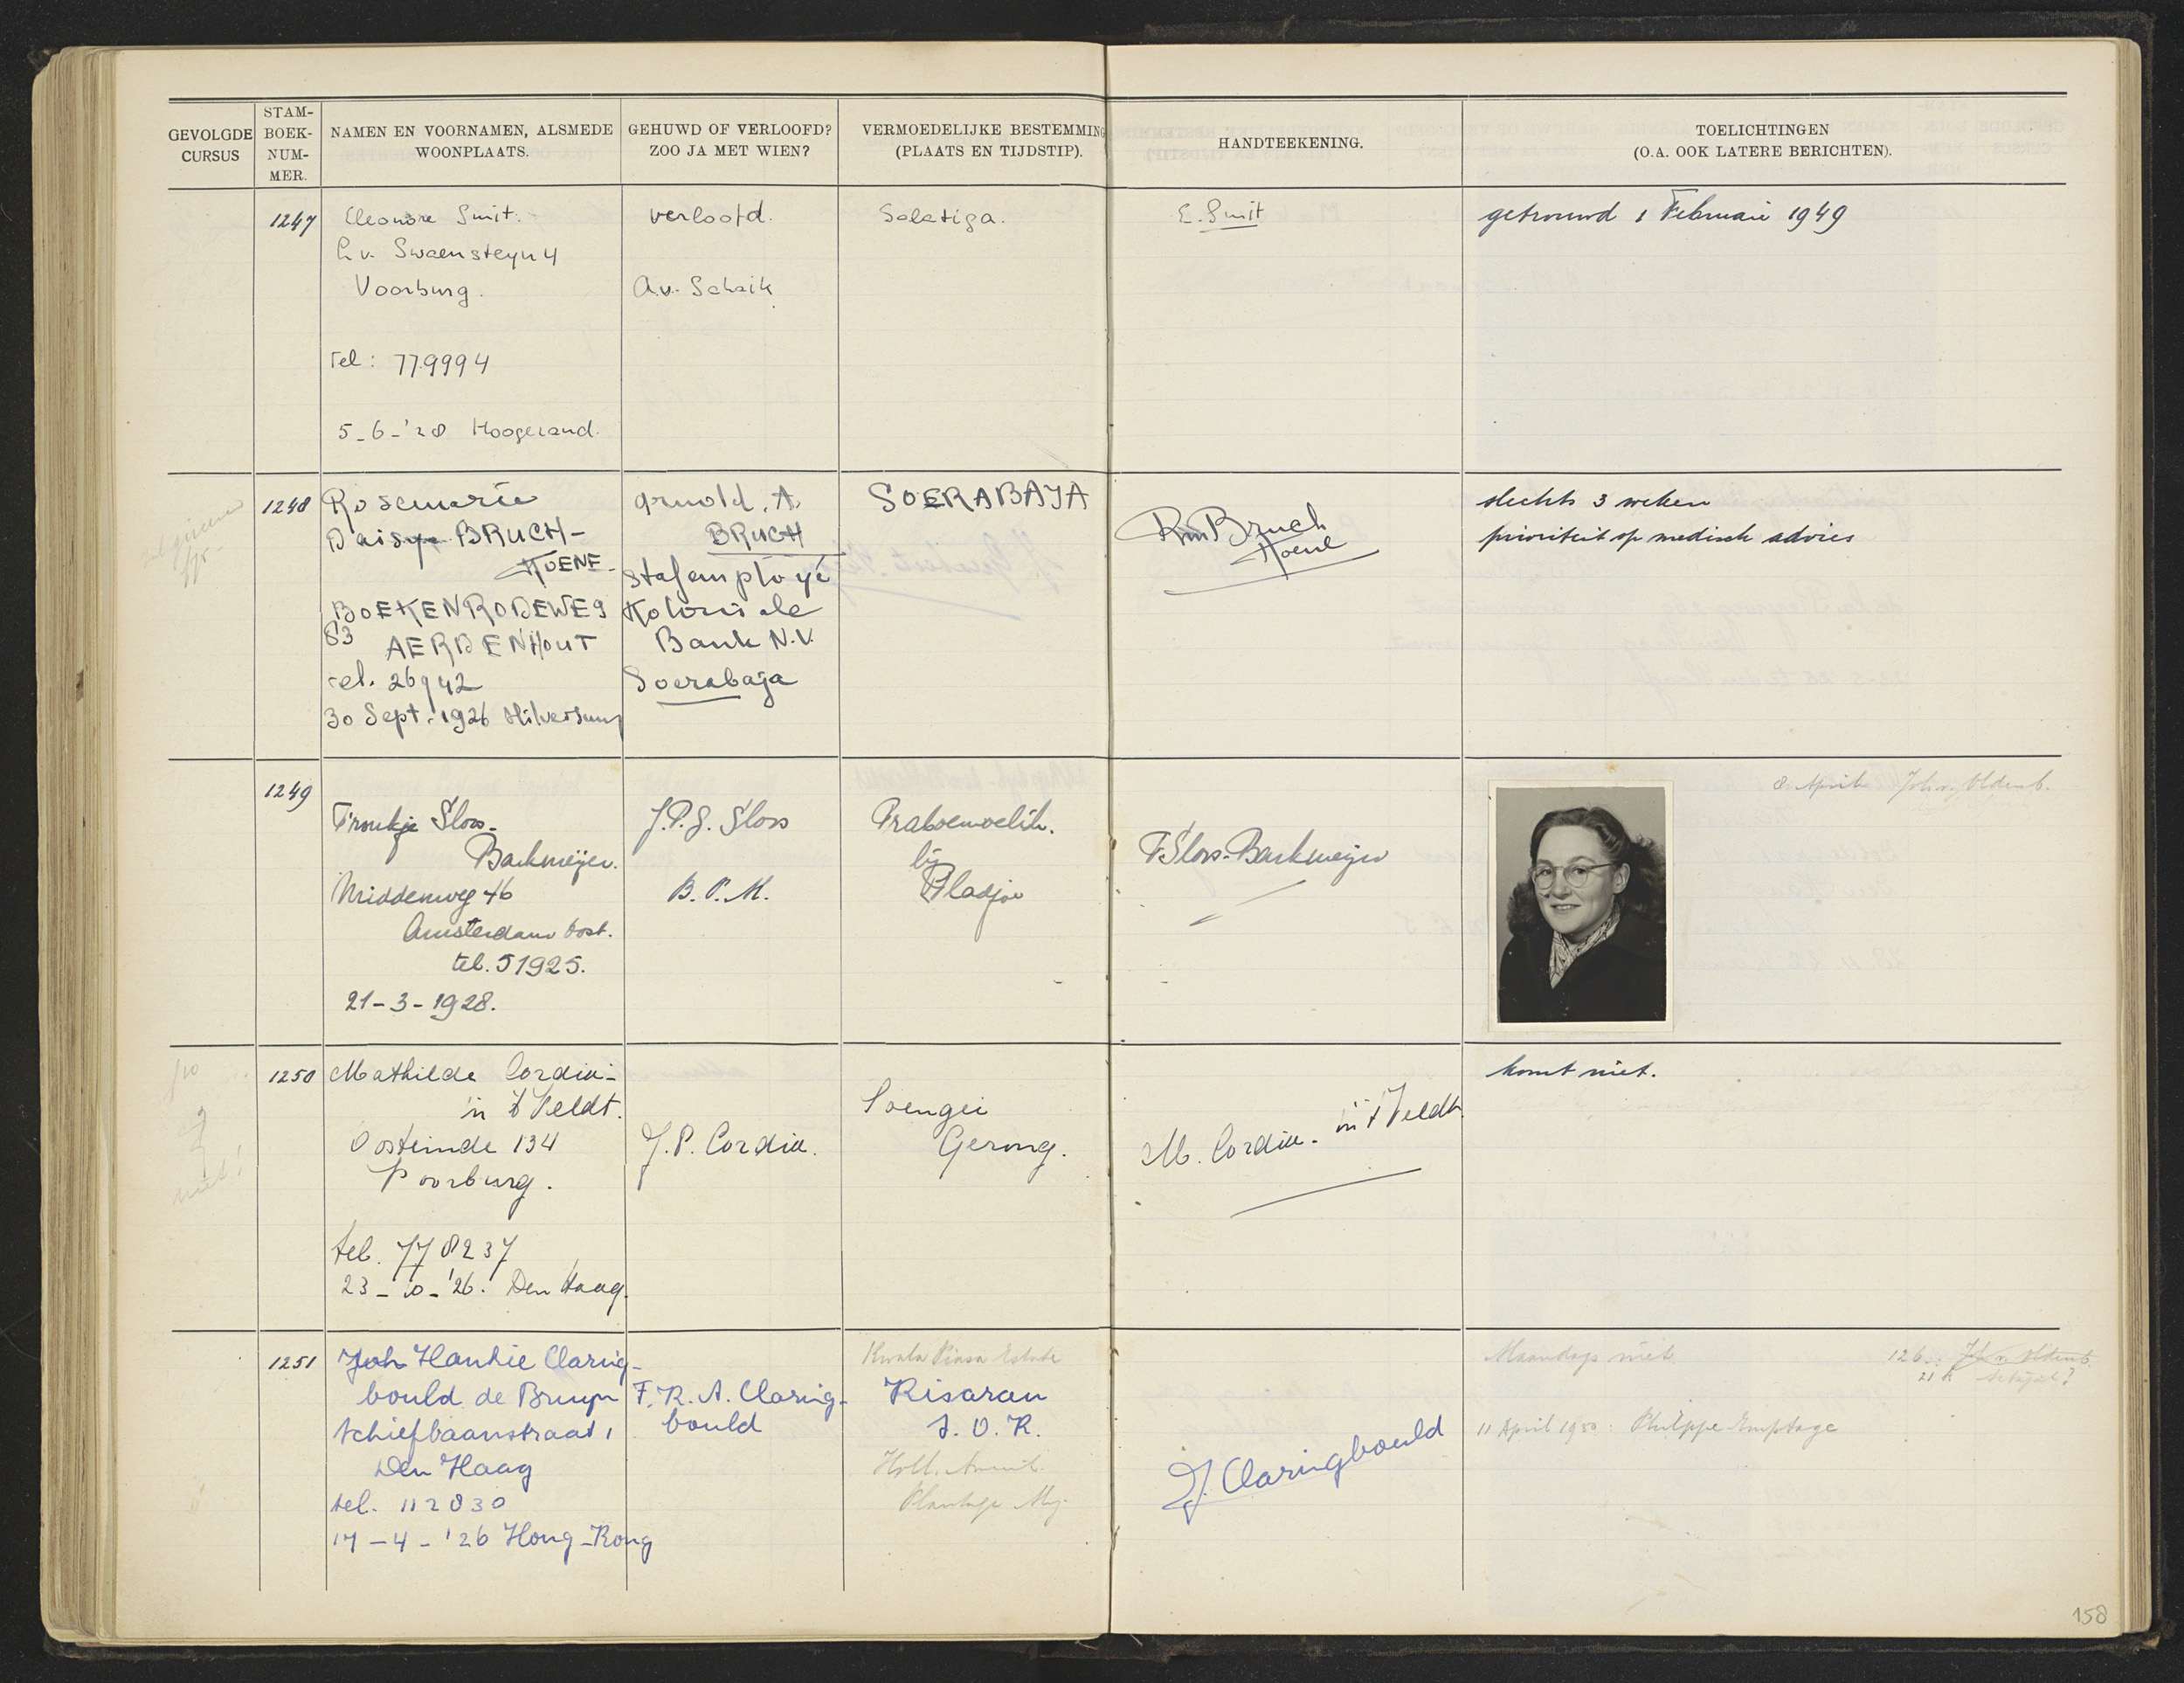 GEVOLGDE CURSUS
STAM-BOEK-NUM-MER.
NAMEN EN VOORNAMEN, ALSMEDE WOONPLAATS.
GEHUWD OF VERLOOFD? ZOO JA MET WIEN?
VERMOEDELIJKE BESTEMMING (PLAATS EN TIJDSTIP).
HANDTEEKENING.
TOELICHTINGEN (O.A. OOK LATERE BERICHTEN).
1247
Eleonore Smit.
L v. Swaensteyn 4
Voorburg.
Tel: 779994
5-6-'28 Hoogezand.
verloofd.
A.v. Schaik
Salatiga.
E. Smit
getrouwd 1 Februari 1949
1248
Rosemarie
Daisy BRUCH-
KOENE-
BOEKENRODEWEG
83 AERDENHOUT
tel. 26942
30 Sept. 1926 Hilversum
Arnold. A.
BRUCH
Stafemployé
Koloniale
Bank N.V.
Soerabaja
SOERABAJA
RmBruch
Koene
slechts 3 weken
prioriteit op medisch advies
1249
Froukje Sloos-
Barkmeijer.
Middenweg 46
Amsterdam Oost.
tel. 51925.
21-3-1928.
J.P.G. Sloos
B.P.M.
Praboemoelih.
bij
Pladjoe
F Sloos-Barkmeijer
8 April Joh. v. Oldenb.
1250
Mathilde Cordia-
in 't Veldt.
Oosteinde 134
Voorburg.
tel. 778237
23-10-'26. Den Haag.
J.P. Cordia.
Soengei
Gerong.
M. Cordia- in 't Veldt
komt niet.
niet!
1251
Joh Hankie Claring-
bould de Bruyn
Schiefbaanstraat 1
Den Haag
tel. 112830
17-4-'26 Hong-Kong
F.R.A. Claring-
bould
Kwala Piasa Estate
Kisaran
S.O.K.
Holl. Amerik.
Plantage Mij.
J. Claringbould
Maandags niet
126
11 April 1950: Philippe Emptage
158